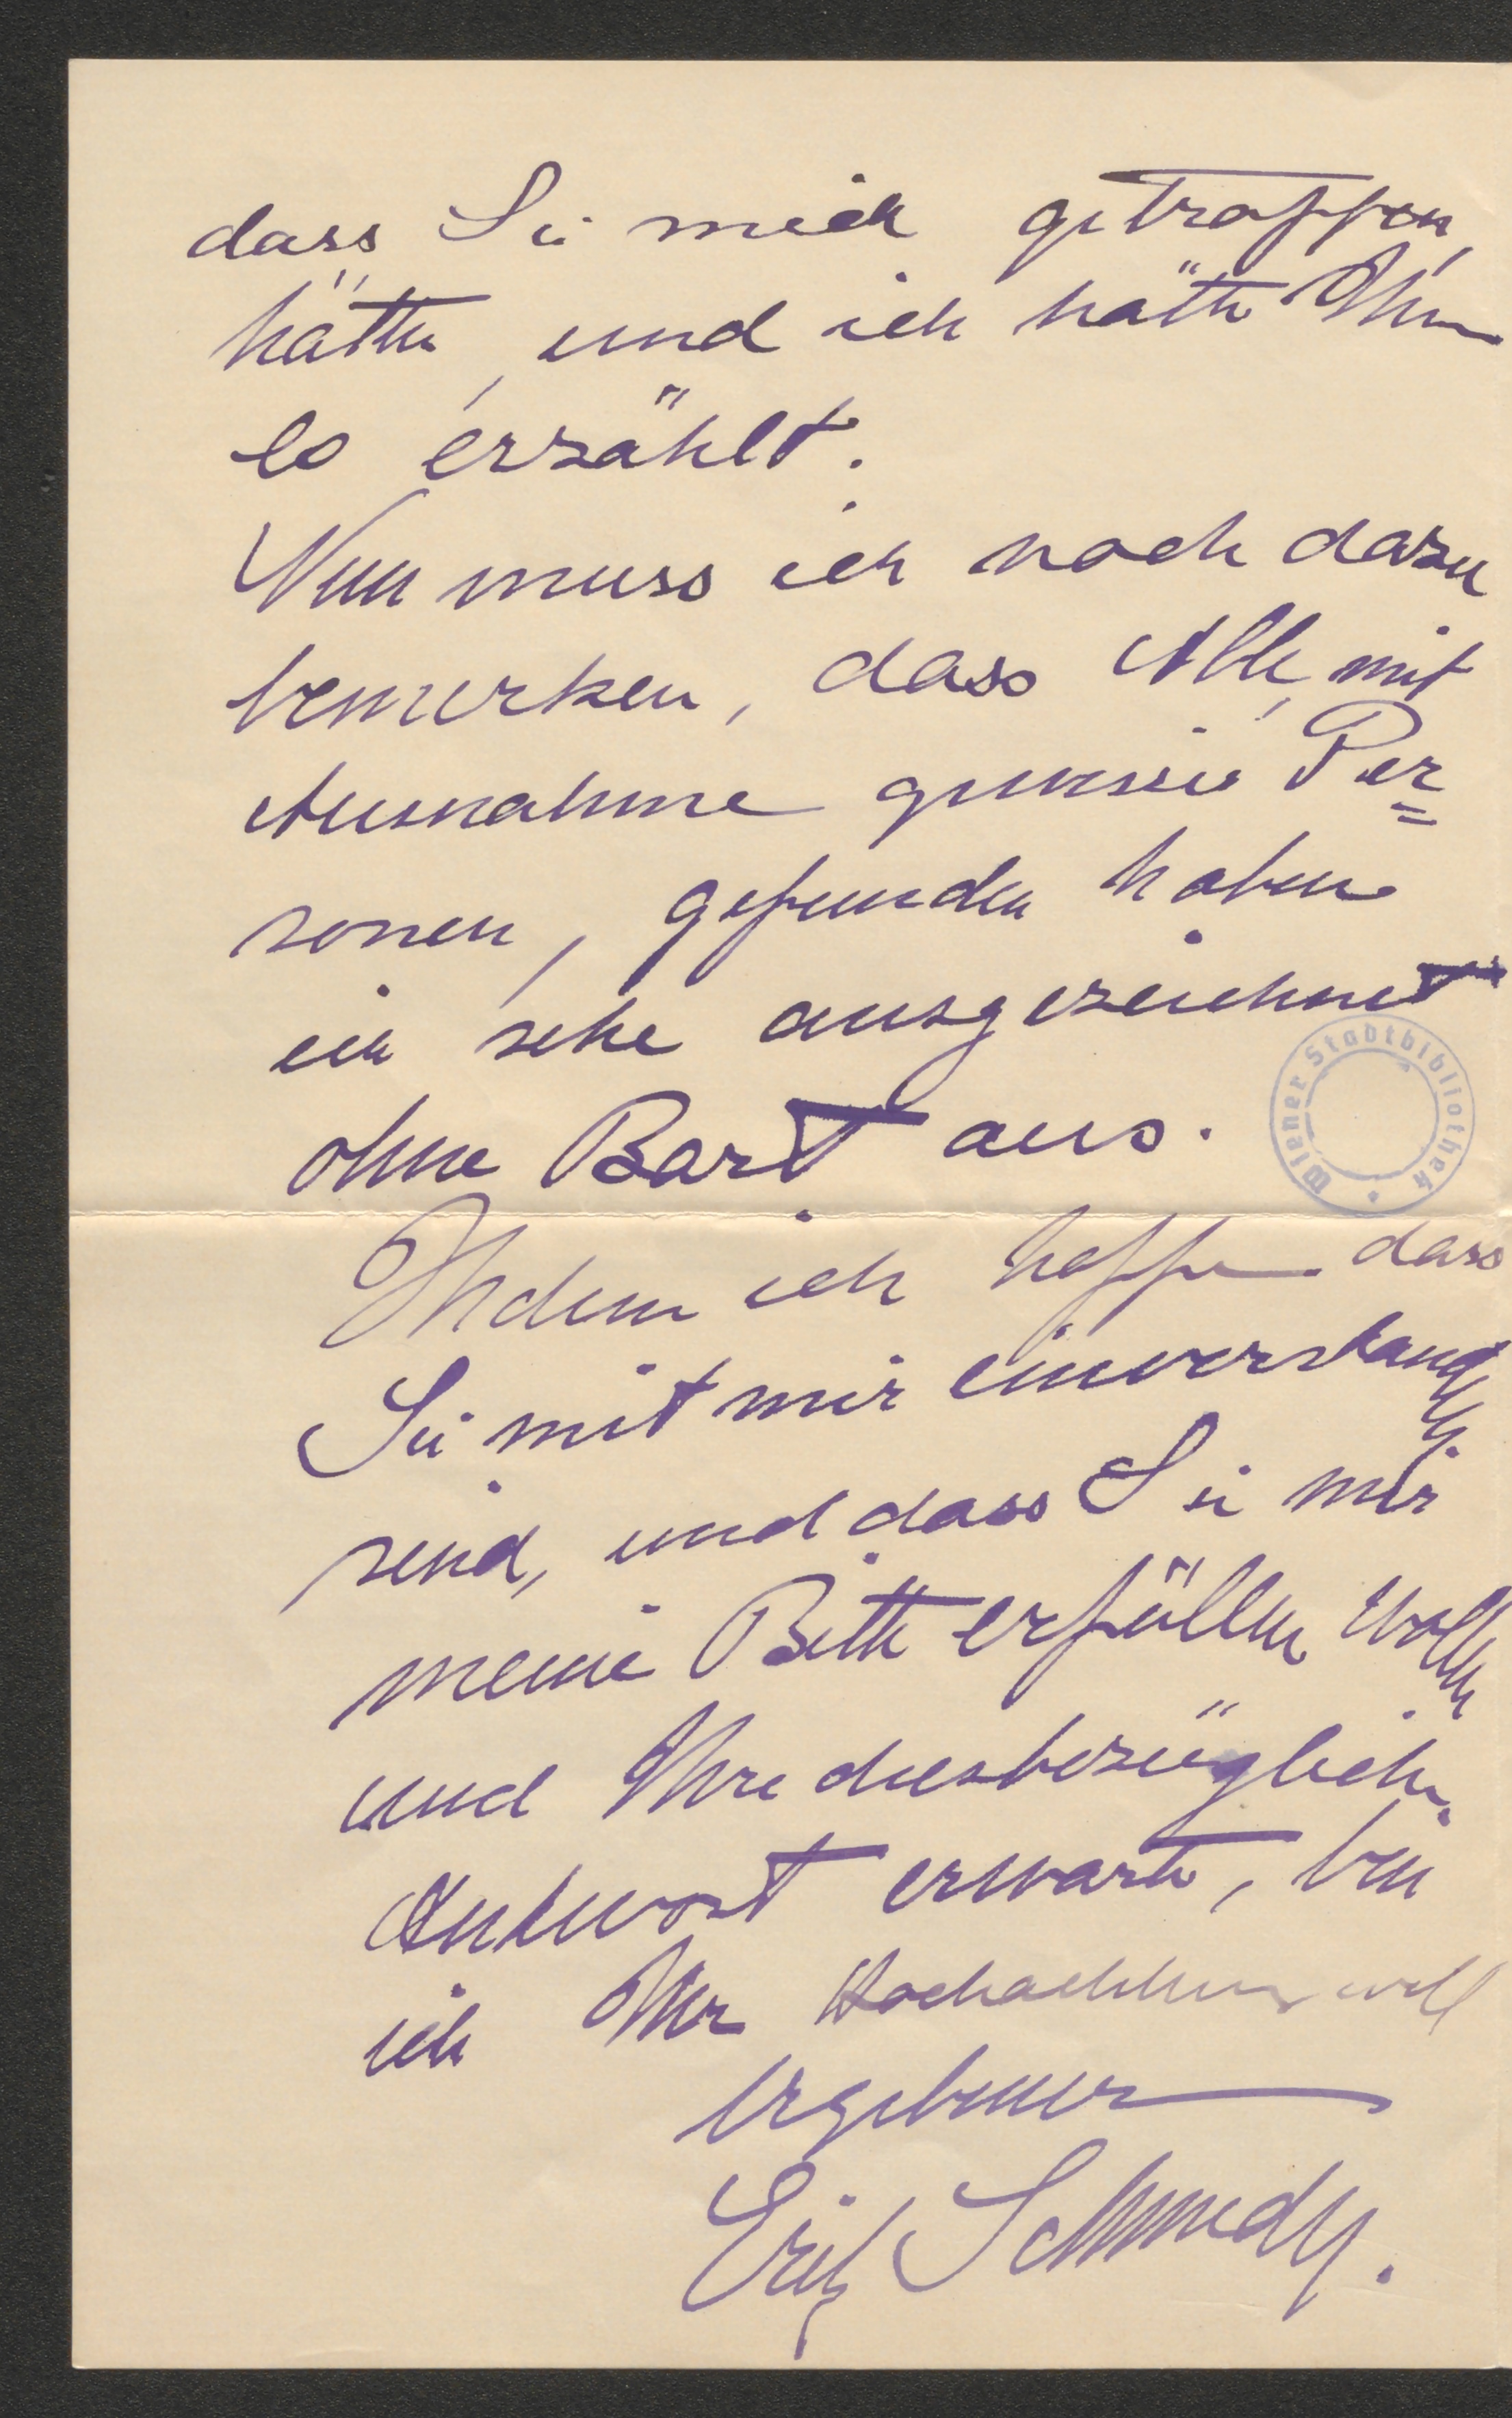 dass Sie mich getroffen
hätten, und ich hätte Ihnen
es erzählt.
Nun muss ich noch dazu
bemerken, dass Alle, mit
Ausnahme gewisse Per=
sonen, gefunden haben
ich sehe ausgezeichnet
ohne Bart aus.
Wiener Stadtbibliothek
Indem ich hoffe dass
Sie mit mir einverstanden
sind, und dass Sie mir
meine Bitte erfüllen wollen
und Ihre diesbezügliche
Antwort erwarte, bin
ich Ihr Hochachtungsvoll
ergebener
Schmedy.